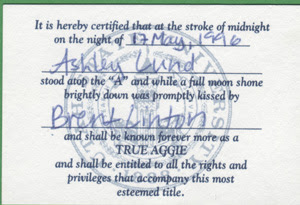 It is hereby certified that at the stroke of midnight
on the night of 17 May, 1996
Ashley Lund
stood atop the "A" and while a full moon shone
brightly down was promptly kissed by
Brent Linton
and shall be known forever more as a
TRUE AGGIE
and shall be entitled to all the rights and
privileges that accompany this most
esteemed title.